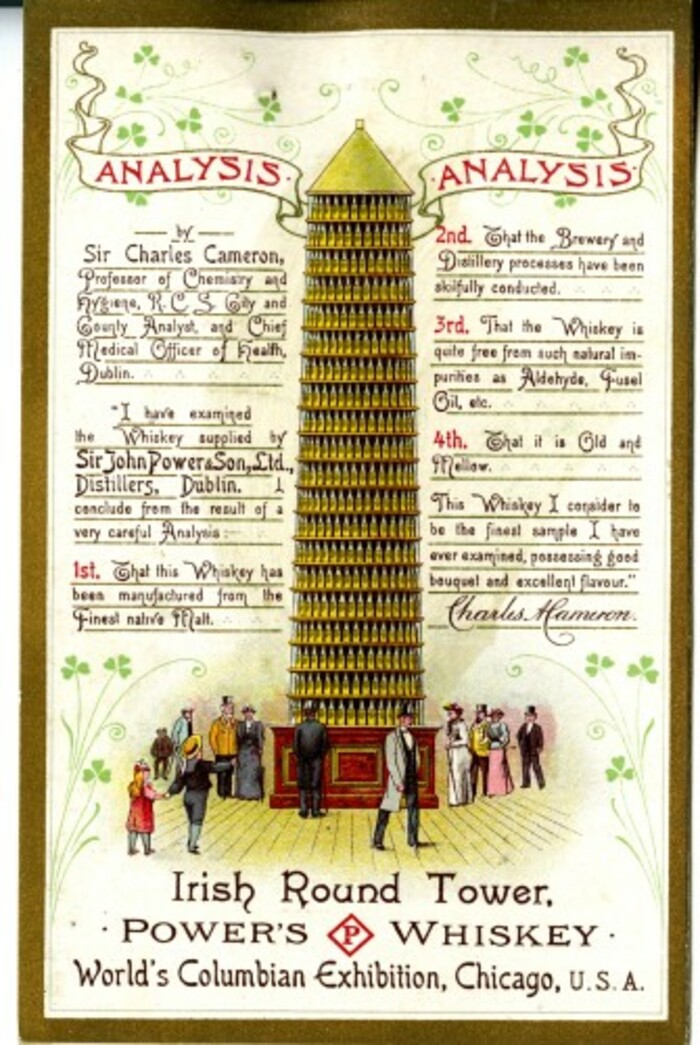 ANALYSIS.
by
Sir Charles Cameron,
Professor of Chemistry and
Hygiene, R. C. S. City and
County Analyst, and Chief
Medical Officer of Health,
Dublin.
"I have examined
the Whiskey supplied by
Sir John Power & Son, Ltd.,
Distillers, Dublin. I
conclude from the result of a
very careful Analysis:-
1st. That this Whiskey has
been manufactured from the
Finest native Malt.
·ANALYSIS·
2nd. That the Brewery and
Distillery processes have been
skilfully conducted.
3rd. That the Whiskey is
quite free from such natural im-
purities as Aldehyde, Fusel
Oil, etc.
4th. That it is Old and
Mellow.
This Whiskey I consider to
be the finest sample I have
ever examined, possessing good
bouquet and excellent flavour."
Charles A. Cameron.
Irish Round Tower.
· POWER'S P WHISKEY ·
World's Columbian Exhibition, Chicago, U. S. A.